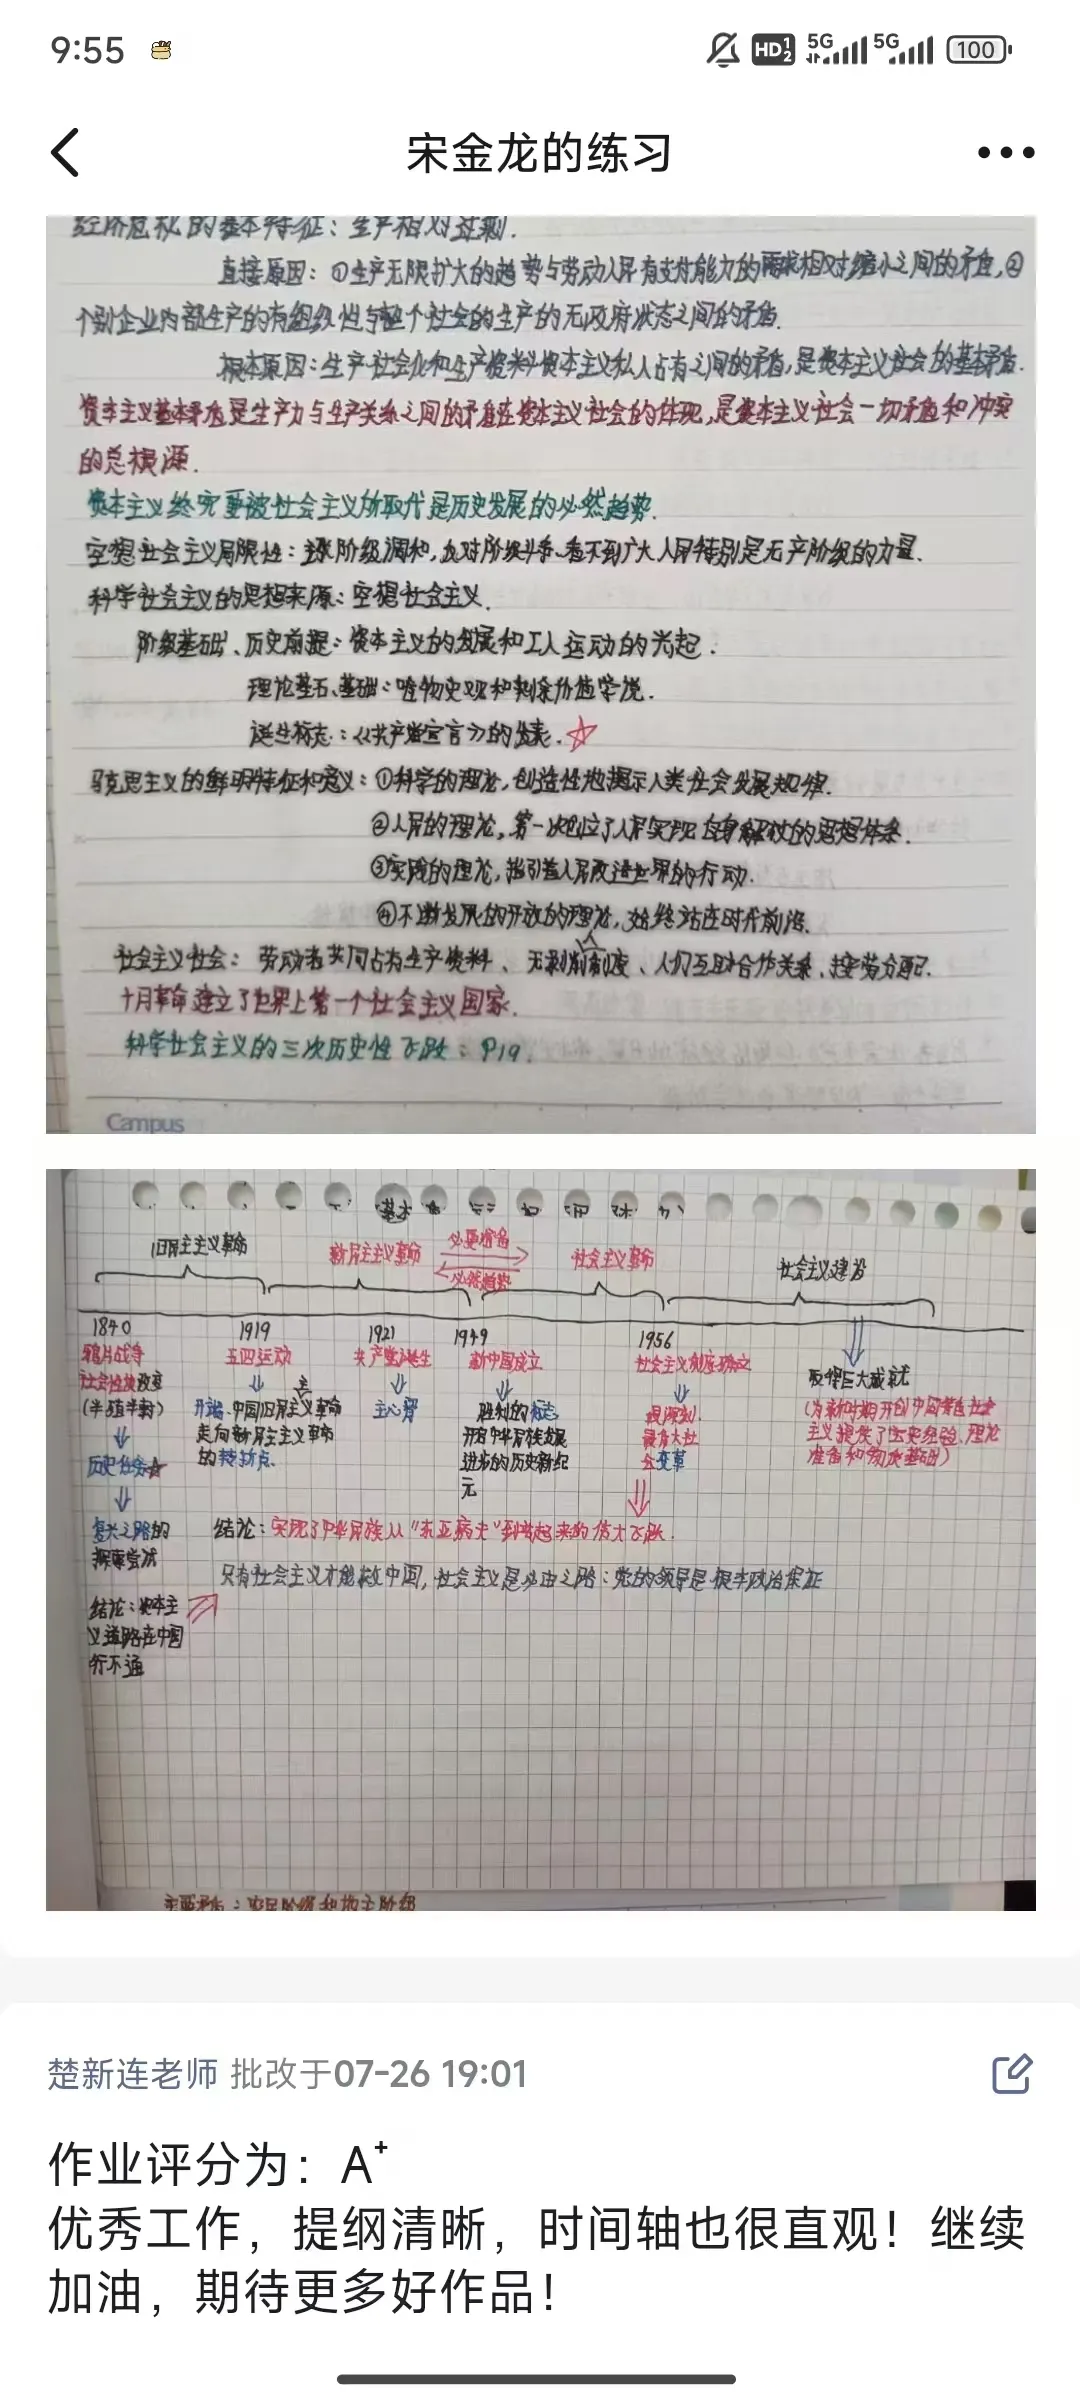 9:55
HD 1 2 5G 5G 100
宋金龙的练习
经济危机的基本特征：生产相对过剩.
直接原因：①生产无限扩大的趋势与劳动人民有支付能力的需求相对缩小之间的矛盾,②
个别企业内部生产的有组织性与整个社会的生产的无政府状态之间的矛盾.
根本原因：生产社会化和生产资料资本主义私人占有之间的矛盾,是资本主义社会的基本矛盾.
资本主义基本矛盾是生产力与生产关系之间的矛盾在资本主义社会的体现,是资本主义社会一切矛盾和冲突
的总根源.
资本主义终究要被社会主义所取代是历史发展的必然趋势.
空想社会主义局限性：主张阶级调和,反对阶级斗争.看不到广大人民特别是无产阶级的力量.
科学社会主义的思想来源：空想社会主义.
阶级基础、历史前提：资本主义的发展和工人运动的兴起.
理论基石、基础：唯物史观和剩余价值学说.
诞生标志：《共产党宣言》的发表.☆
马克思主义的鲜明特征和意义：①科学的理论,创造性地揭示人类社会发展规律.
②人民的理论,第一次创立了人民实现自身解放的思想体系.
③实践的理论,指引着人民改造世界的行动.
④不断发展的开放的理论,始终站在时代前沿.
社会主义社会：劳动者共同占有生产资料、无剥削制度、人们互助合作关系、按劳分配.
十月革命建立了世界上第一个社会主义国家.
科学社会主义的三次历史性飞跃：P19.
Campus
旧民主主义革命 新民主主义革命 必要准备 社会主义革命 社会主义建设
必然趋势
1840 1919 1921 1949 1956
鸦片战争 五四运动 共产党诞生 新中国成立 社会主义制度确立
社会性质改变 取得巨大成就
(半殖半封) 开端.中国旧民主主义革命 主心骨 胜利的标志 最深刻 (为新时期开创中国特色社会
走向新民主主义革命 开启中华民族发展 最有大社 主义提供了历史经验、理论
历史任务☆ 的转折点. 进步的历史新纪 会变革 准备和物质基础)
元
复兴之路的 结论：实现了中华民族从"东亚病夫"到站起来的伟大飞跃.
探索尝试
只有社会主义才能救中国,社会主义是必由之路：党的领导是根本政治保证
结论：资本主
义道路在中国
行不通
楚新连老师 批改于07-26 19:01
作业评分为：A⁺
优秀工作，提纲清晰，时间轴也很直观！继续
加油，期待更多好作品！